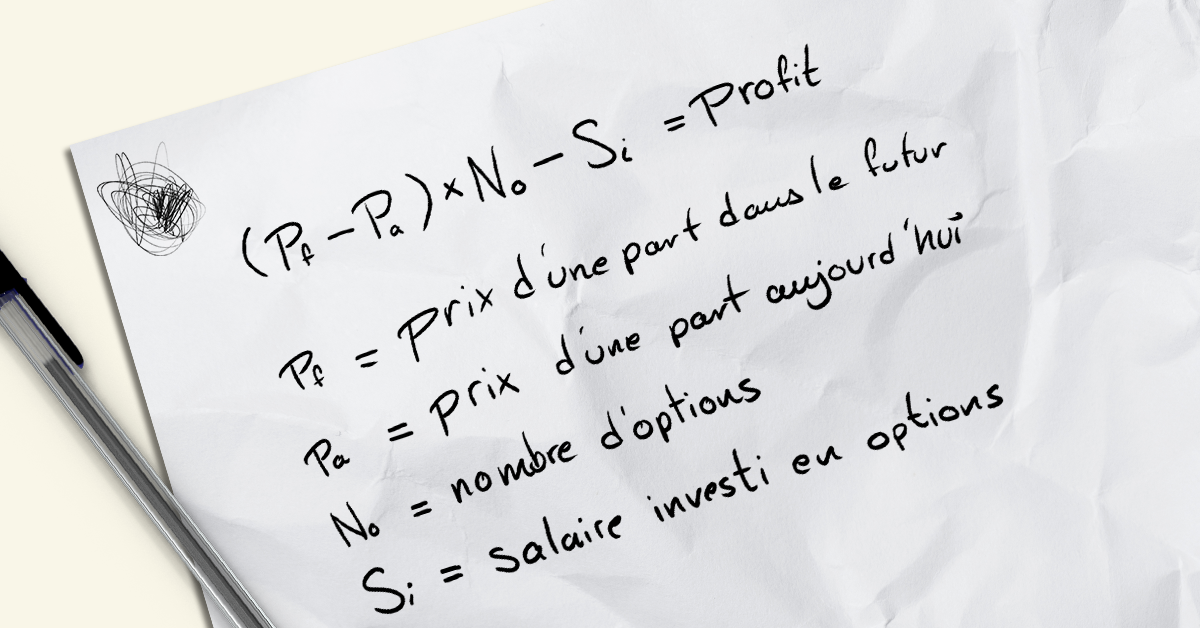 (Pf - Pa) × No - Si = Profit
Pf = Prix d'une part dans le futur
Pa = prix d'une part aujourd'hui
No = nombre d'options
Si = salaire investi en options